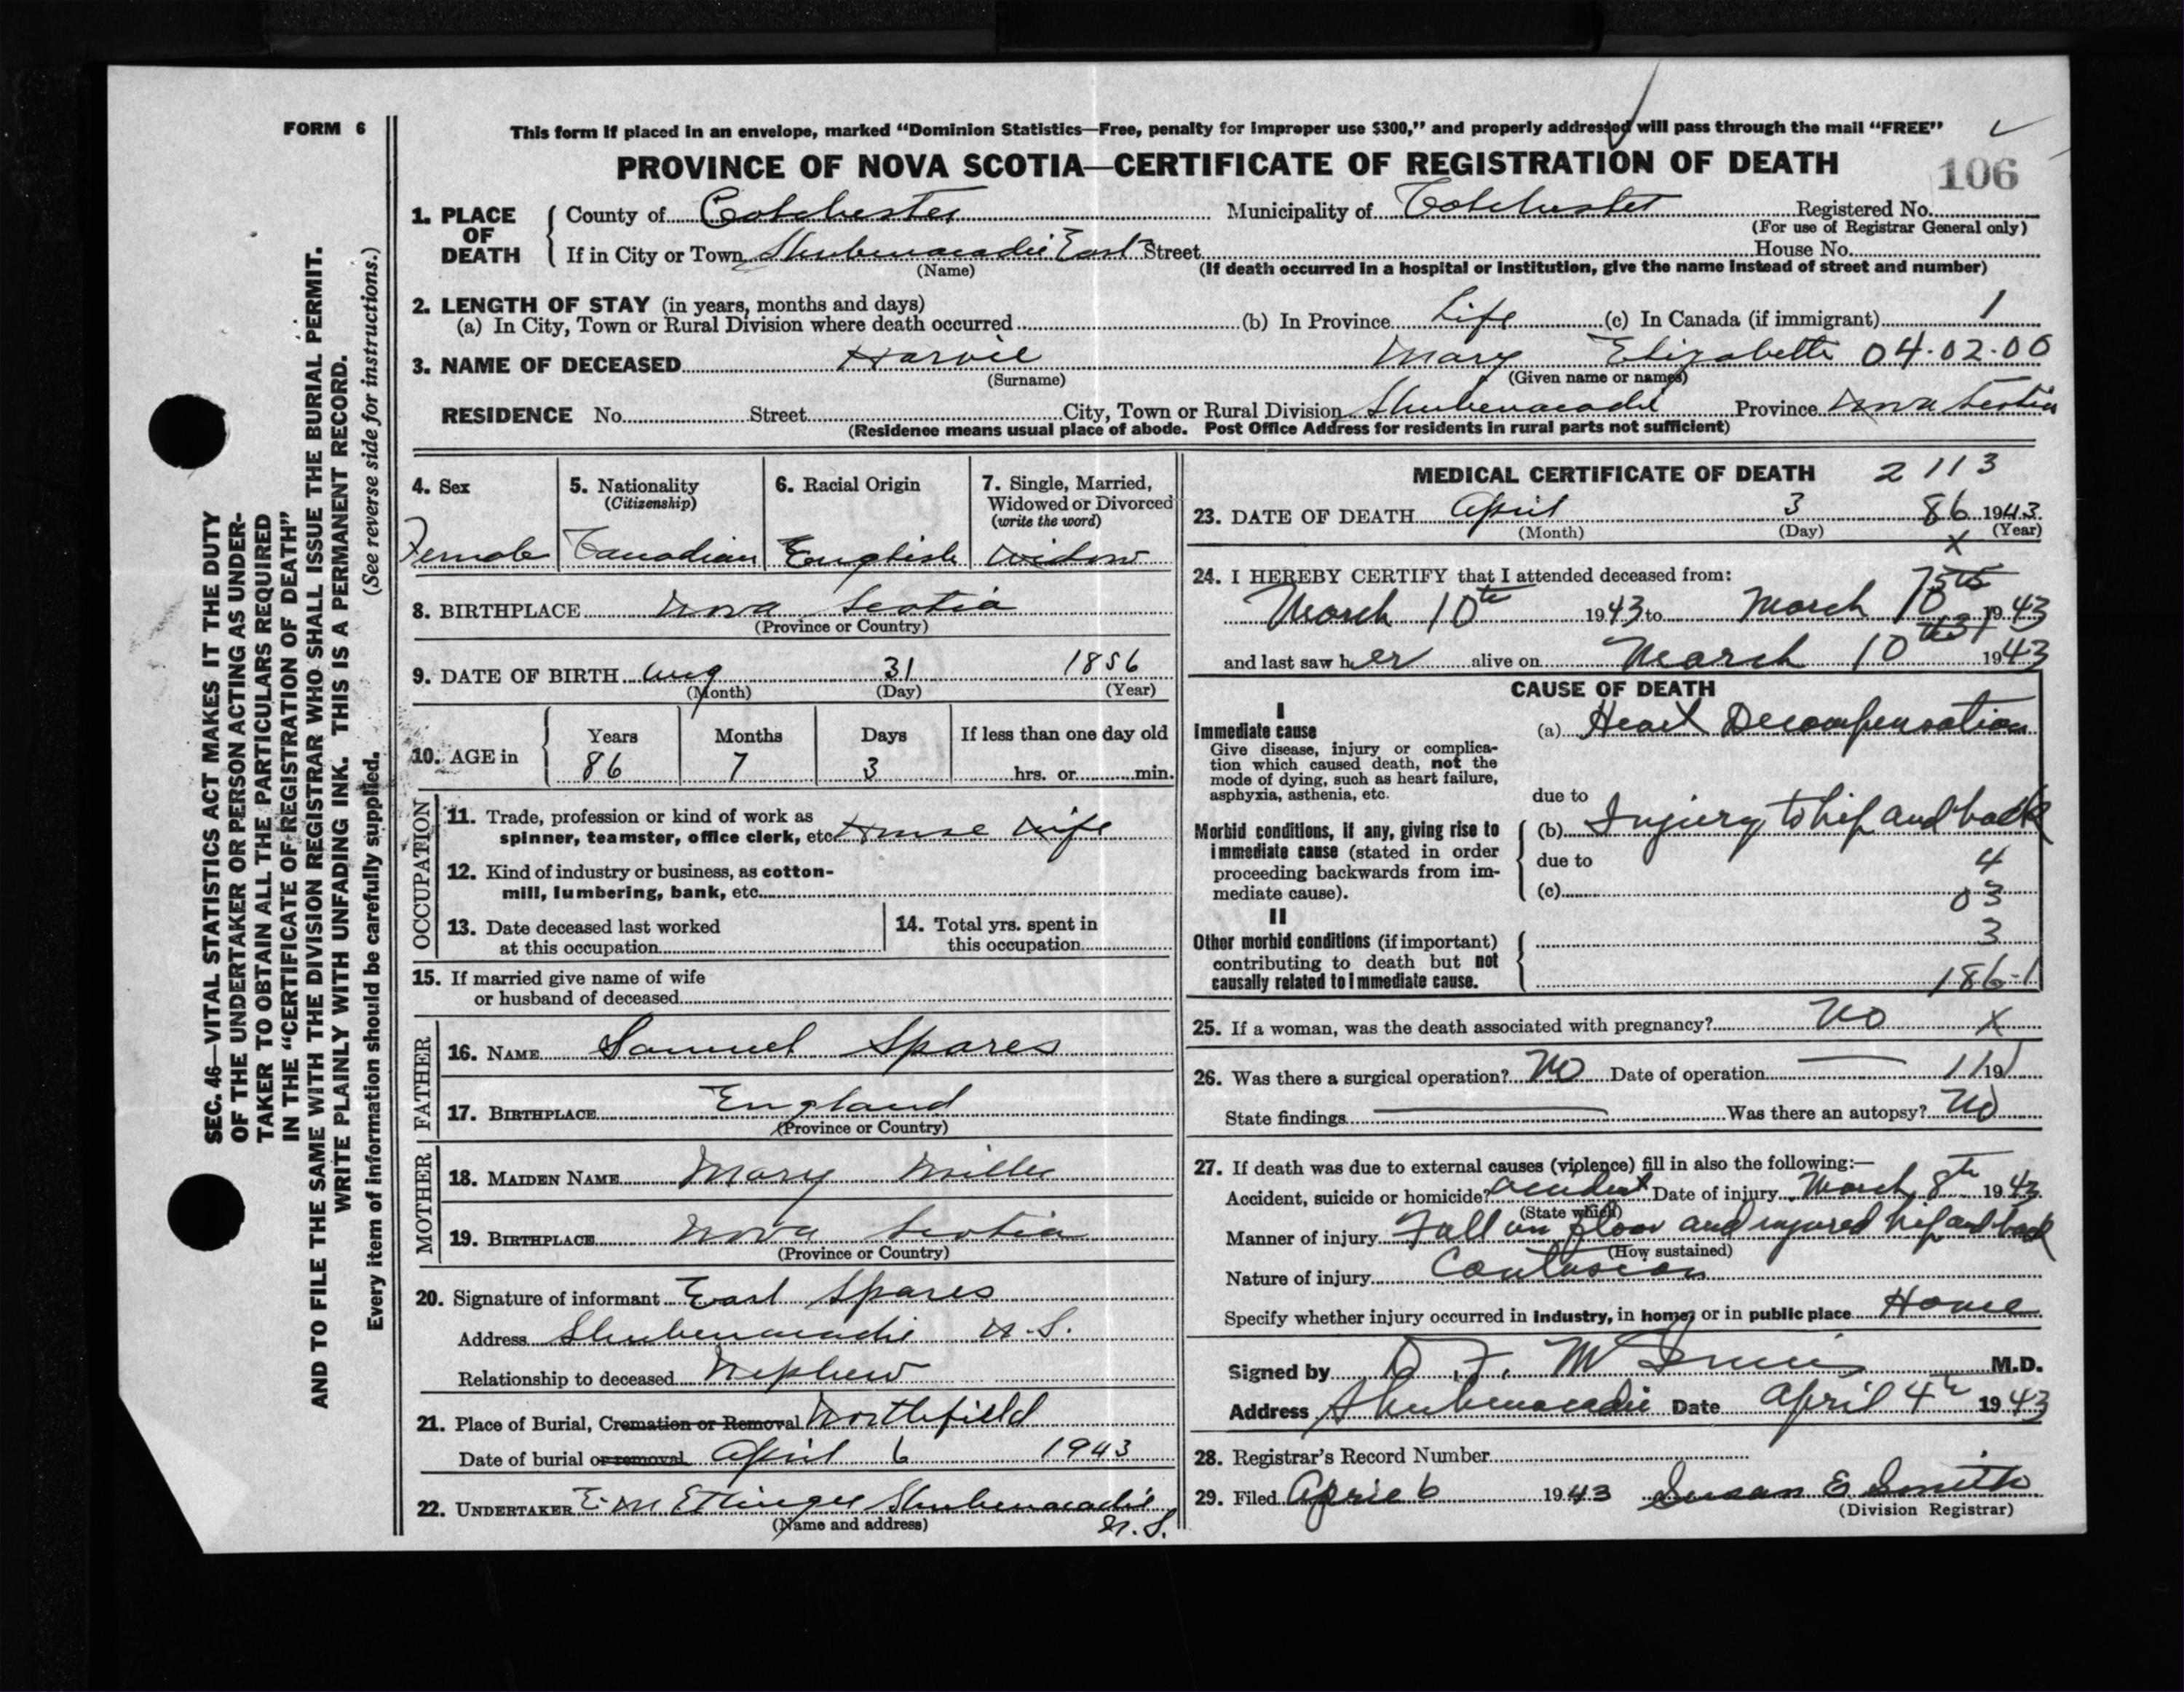 FORM 6
This form if placed in an envelope, marked “Dominion Statistics—Free, penalty for improper use $300,” and properly addressed will pass through the mail “FREE”
PROVINCE OF NOVA SCOTIA—CERTIFICATE OF REGISTRATION OF DEATH
106
1. PLACE OF DEATH County of Colchester Municipality of Colchester Registered No.
(For use of Registrar General only)
If in City or Town Shubenacadie East Street House No.
(Name) (If death occurred in a hospital or institution, give the name instead of street and number)
2. LENGTH OF STAY (in years, months and days)
(a) In City, Town or Rural Division where death occurred (b) In Province Life (c) In Canada (if immigrant) 1
3. NAME OF DECEASED Harvie Mary Elizabeth 04-02-00
(Surname) (Given name or names)
RESIDENCE No. Street City, Town or Rural Division Shubenacadie Province Nova Scotia
(Residence means usual place of abode. Post Office Address for residents in rural parts not sufficient)
4. Sex Female
5. Nationality (Citizenship) Canadian
6. Racial Origin English
7. Single, Married, Widowed or Divorced (write the word) Widow
8. BIRTHPLACE Nova Scotia
(Province or Country)
9. DATE OF BIRTH Aug 31 1856
(Month) (Day) (Year)
10. AGE in Years Months Days If less than one day old
86 7 3 hrs. or min.
OCCUPATION
11. Trade, profession or kind of work as
spinner, teamster, office clerk, etc. House Wife
12. Kind of industry or business, as cotton-
mill, lumbering, bank, etc.
13. Date deceased last worked
at this occupation
14. Total yrs. spent in
this occupation
15. If married give name of wife
or husband of deceased
FATHER
16. NAME Samuel Spares
17. BIRTHPLACE England
(Province or Country)
MOTHER
18. MAIDEN NAME Mary Miller
19. BIRTHPLACE Nova Scotia
(Province or Country)
20. Signature of informant Earl Spares
Address Shubenacadie N.S.
Relationship to deceased Nephew
21. Place of Burial, Cremation or Removal Northfield
Date of burial or removal April 6 1943
22. UNDERTAKER E. M Ettinger Shubenacadie
(Name and address) N.S.
MEDICAL CERTIFICATE OF DEATH 2113
23. DATE OF DEATH April 3 86 1943
(Month) (Day) (Year)
x
24. I HEREBY CERTIFY that I attended deceased from:
March 10th 1943 to March 10 1943
and last saw her alive on March 10th 1943
CAUSE OF DEATH
I
Immediate cause
Give disease, injury or complica-
tion which caused death, not the
mode of dying, such as heart failure,
asphyxia, asthenia, etc.
(a) Heart Decompensation
due to
Morbid conditions, if any, giving rise to
immediate cause (stated in order
proceeding backwards from im-
mediate cause).
(b) Injury to hip and back
due to 4
(c) 03
II
Other morbid conditions (if important)
contributing to death but not
causally related to immediate cause.
3
186-1
25. If a woman, was the death associated with pregnancy? No X
26. Was there a surgical operation? No Date of operation 19
State findings Was there an autopsy? No
27. If death was due to external causes (violence) fill in also the following:—
Accident, suicide or homicide? accident Date of injury March 8th 1943
(State which)
Manner of injury Fall on floor and injured hip and back
(How sustained)
Nature of injury Contusion
Specify whether injury occurred in industry, in home, or in public place Home
Signed by D. F. McInnis M.D.
Address Shubenacadie Date April 4th 1943
28. Registrar's Record Number
29. Filed April 6 1943 Susan E Smith
(Division Registrar)
SEC. 46—VITAL STATISTICS ACT MAKES IT THE DUTY
OF THE UNDERTAKER OR PERSON ACTING AS UNDER-
TAKER TO OBTAIN ALL THE PARTICULARS REQUIRED
IN THE “CERTIFICATE OF REGISTRATION OF DEATH”
AND TO FILE THE SAME WITH THE DIVISION REGISTRAR WHO SHALL ISSUE THE BURIAL PERMIT.
WRITE PLAINLY WITH UNFADING INK. THIS IS A PERMANENT RECORD.
(See reverse side for instructions.)
Every item of information should be carefully supplied.